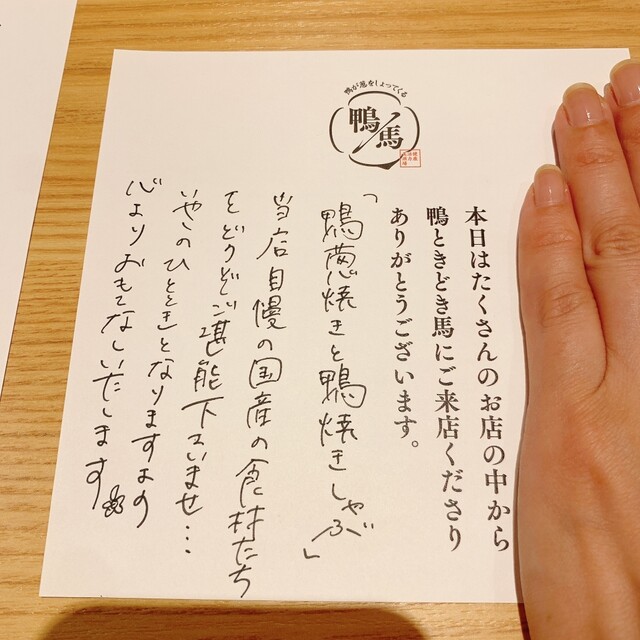 鴨が葱をしょってくる
鴨/馬
本日はたくさんのお店の中から
鴨ときどき馬にご来店くださり
ありがとうございます。
「鴨葱焼きと鴨焼きしゃぶ」
当店自慢の国産の食材たち
をどうぞご堪能下さいませ…
いやしのひとときとなりますよう
心よりおもてなしいたします